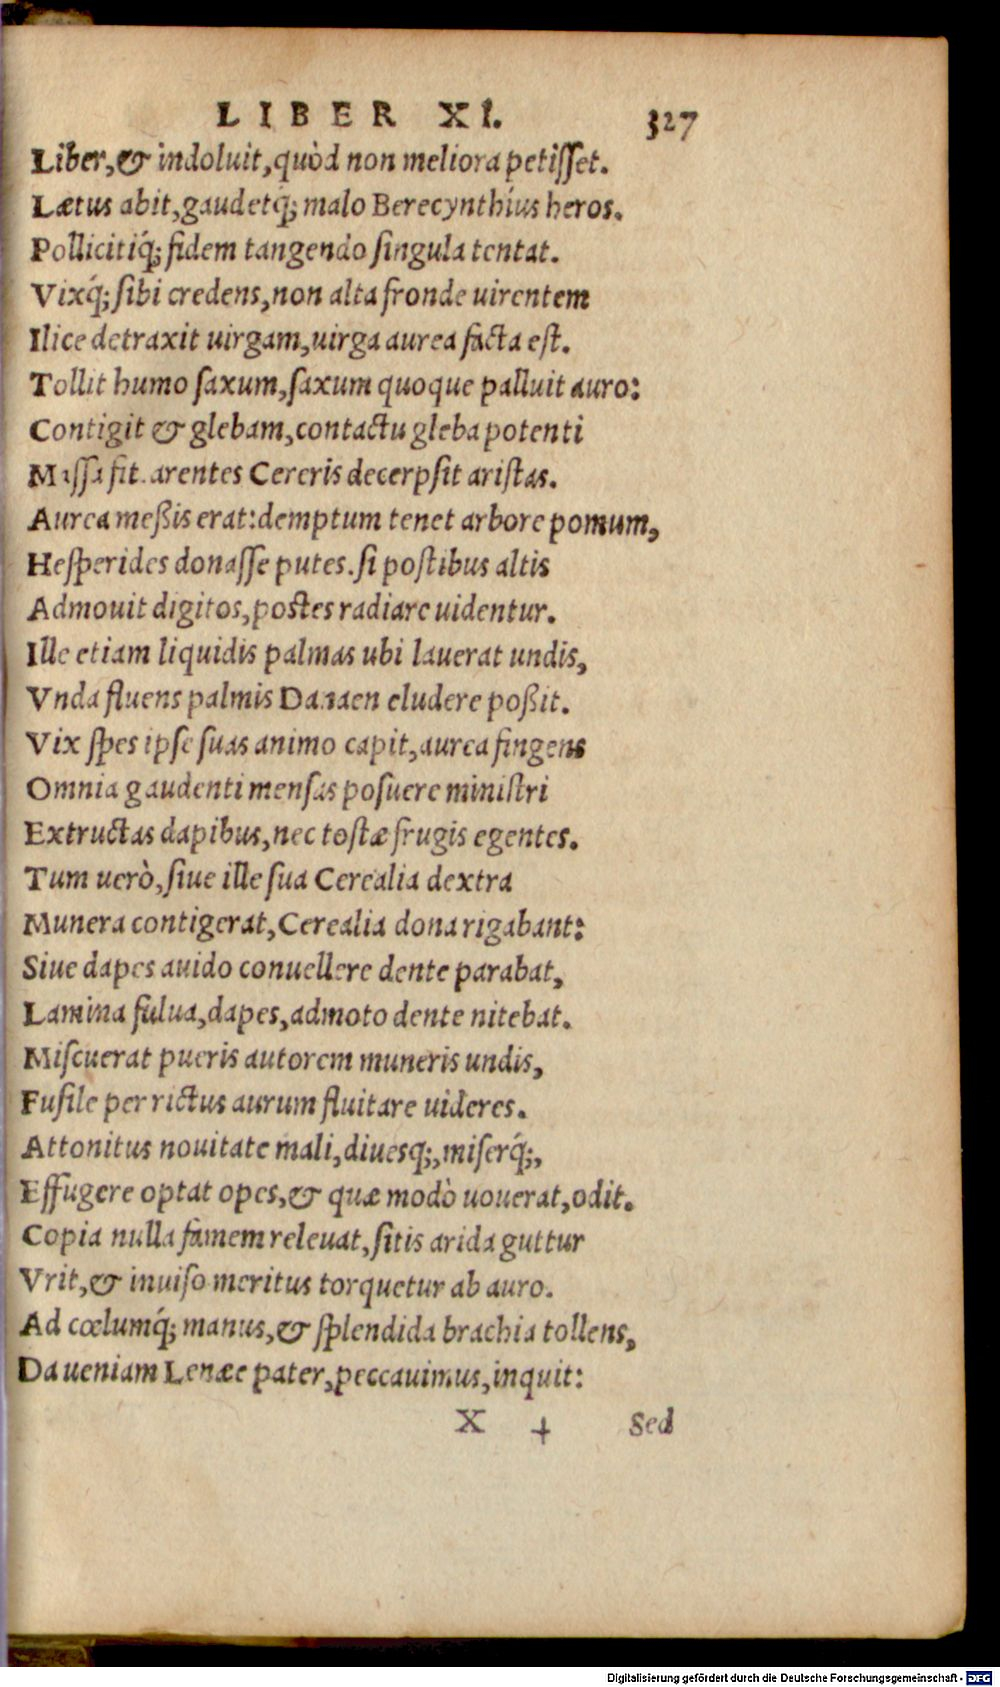 LIBER XI. 327
Liber, & indoluit, quòd non meliora petisset.
Lætus abit, gaudetq́; malo Berecynthíus heros.
Pollicitiq́; fidem tangendo singula tentat.
Vixq́; sibi credens, non alta fronde uirentem
Ilice detraxit uirgam, uirga aurea facta est.
Tollit humo saxum, saxum quoque palluit auro:
Contigit & glebam, contactu gleba potenti
Massa fit. arentes Cereris decerpsit aristas.
Aurea meßis erat: demptum tenet arbore pomum,
Hesperides donasse putes. si postibus altis
Admouit digitos, postes radiare uidentur.
Ille etiam liquidis palmas ubi lauerat undis,
Vnda fluens palmis Danaen eludere poßit.
Vix spes ipse suas animo capit, aurea fingens
Omnia gaudenti mensas posuere ministri
Extructas dapibus, nec tostæ frugis egentes.
Tum uerò, siue ille sua Cerealia dextra
Munera contigerat, Cerealia dona rigabant:
Siue dapes auido conuellere dente parabat,
Lamina fulua, dapes, admoto dente nitebat.
Miscuerat pueris autorem muneris undis,
Fusile per rictus aurum fluitare uideres.
Attonitus nouitate mali, diuesq;, miserq́;,
Effugere optat opes, & quæ modò uouerat, odit.
Copia nulla famem releuat, sitis arida guttur
Vrit, & inuiso meritus torquetur ab auro.
Ad cœlumq́; manus, & splendida brachia tollens,
Da ueniam Lenæe pater, peccauimus, inquit:
X 4 Sed
Digitalisierung gefördert durch die Deutsche Forschungsgemeinschaft - DFG